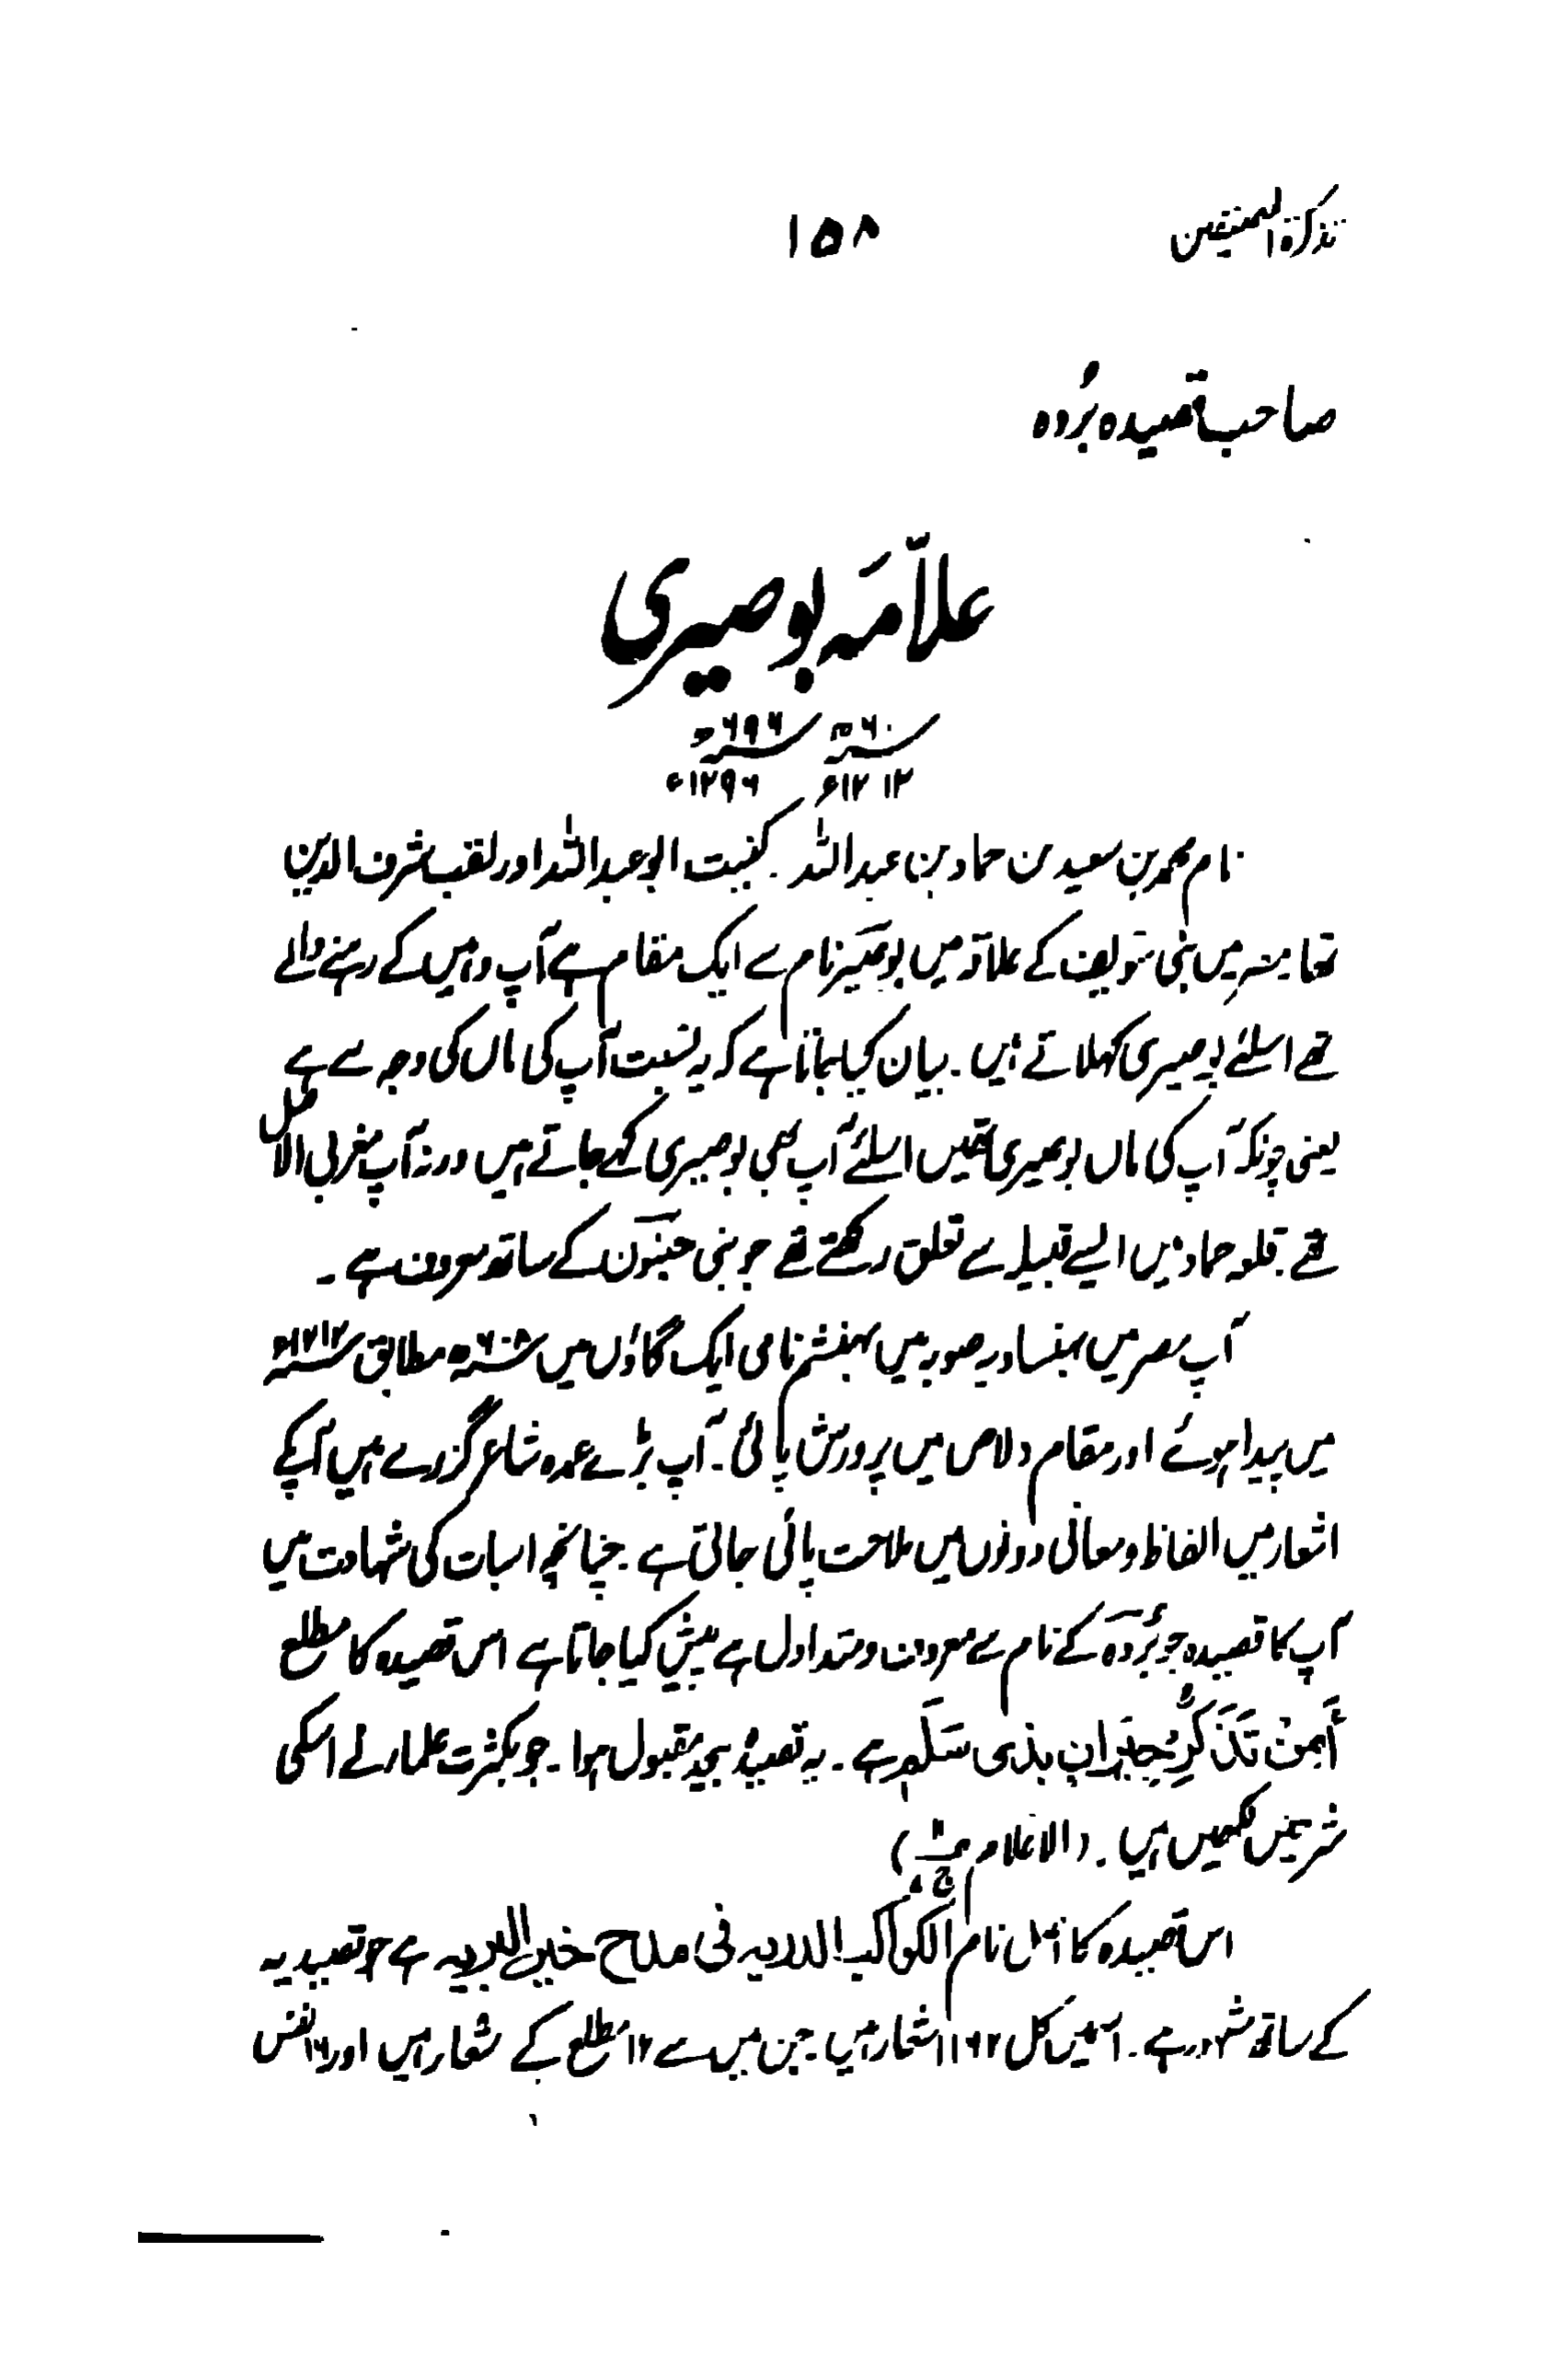 تذکرۃ المصنفین
۱۵۸
صاحب قصیدہ بُردہ
علاّمہ بوصیری
۶۹۶ھ
۱۲۱۲ء ۱۲۹۶ء
نام محمد بن سعید بن حماد بن عبداللہ۔ کنیت ابوعبداللہ اور لقب شرف الدین
تھا مصر میں بنی سویف کے علاقہ میں بوصیر نام سے ایک مقام ہے آپ وہیں کے رہنے والے
تھے اسلئے بوصیری کہلاتے ہیں۔ بیان کیا جاتا ہے کہ یہ نسبت آپ کی ماں کی وجہ سے ہے
یعنی چونکہ آپ کی ماں بوصیری تھیں اسلئے آپ بھی بوصیری کہے جاتے ہیں ورنہ آپ مغربی الاصل
تھے قلعہ حماد میں ایسے قبیلے سے تعلق رکھتے تھے جو بنی حبنون کے ساتھ معروف ہے۔
آپ مصر میں بہنساویہ صوبہ میں بہنشم نامی ایک گاؤں میں ۶۰۸ھ مطابق ۱۲۱۲ء
میں پیدا ہوئے اور مقام دلاص میں پرورش پائی۔ آپ بڑے عمدہ شاعر گزرے ہیں آپکے
اشعار میں الفاظ و معانی دونوں میں ملاحت پائی جاتی ہے۔ چنانچہ اسبات کی شہادت میں
آپ کا قصیدہ جو بُردہ کے نام سے معروف و متداول ہے پیش کیا جاتا ہے اس قصیدہ کا مطلع
أَمِنْ تَذَكُّرِ جِيرَانٍ بذی سَلَم ہے۔ یہ قصیدہ بیحد مقبول ہوا۔ جو بکثرت علماء نے اسکی
شرحیں لکھیں ہیں۔ (الاعلام)
اس قصیدہ کا اصل نام الکواکب الدریہ فی مدح خیر البریہ ہے جو قصیدہ یہ
کے ساتھ مشہور ہے۔ اسمیں کل ۱۶۲ اشعار ہیں۔ جن میں سے ۱۲ مطلع کے شعار ہیں اور ۱۶ نفس